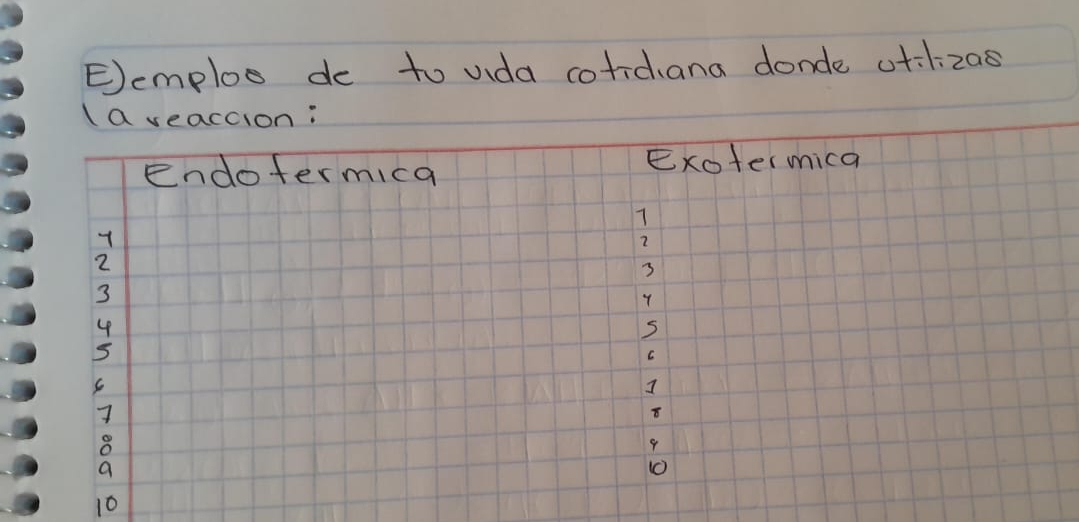 Ejemplos de tu vida cotidiana donde utilizas
la reaccion:
Endotermica Exotermica
1 1
2 2
3 3
4 4
5 5
6 6
7 7
8 8
9 9
10 10